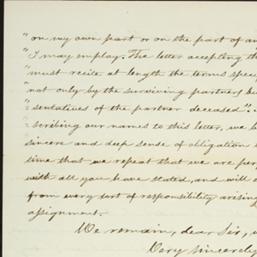 "on my own part or on the part of an
"I may employ. The letter accepting th
"must recite at length the terms spec
"not only by the surviving partner, bu
"sentatives of the partner deceased".
scribing our names to this letter, we b
sincere and deep sense of obligation
time that we repeat that we are per
with all you have stated, and will
from every sort of responsibility arising
assignment.
We remain, dear Sir,
Very sincerely